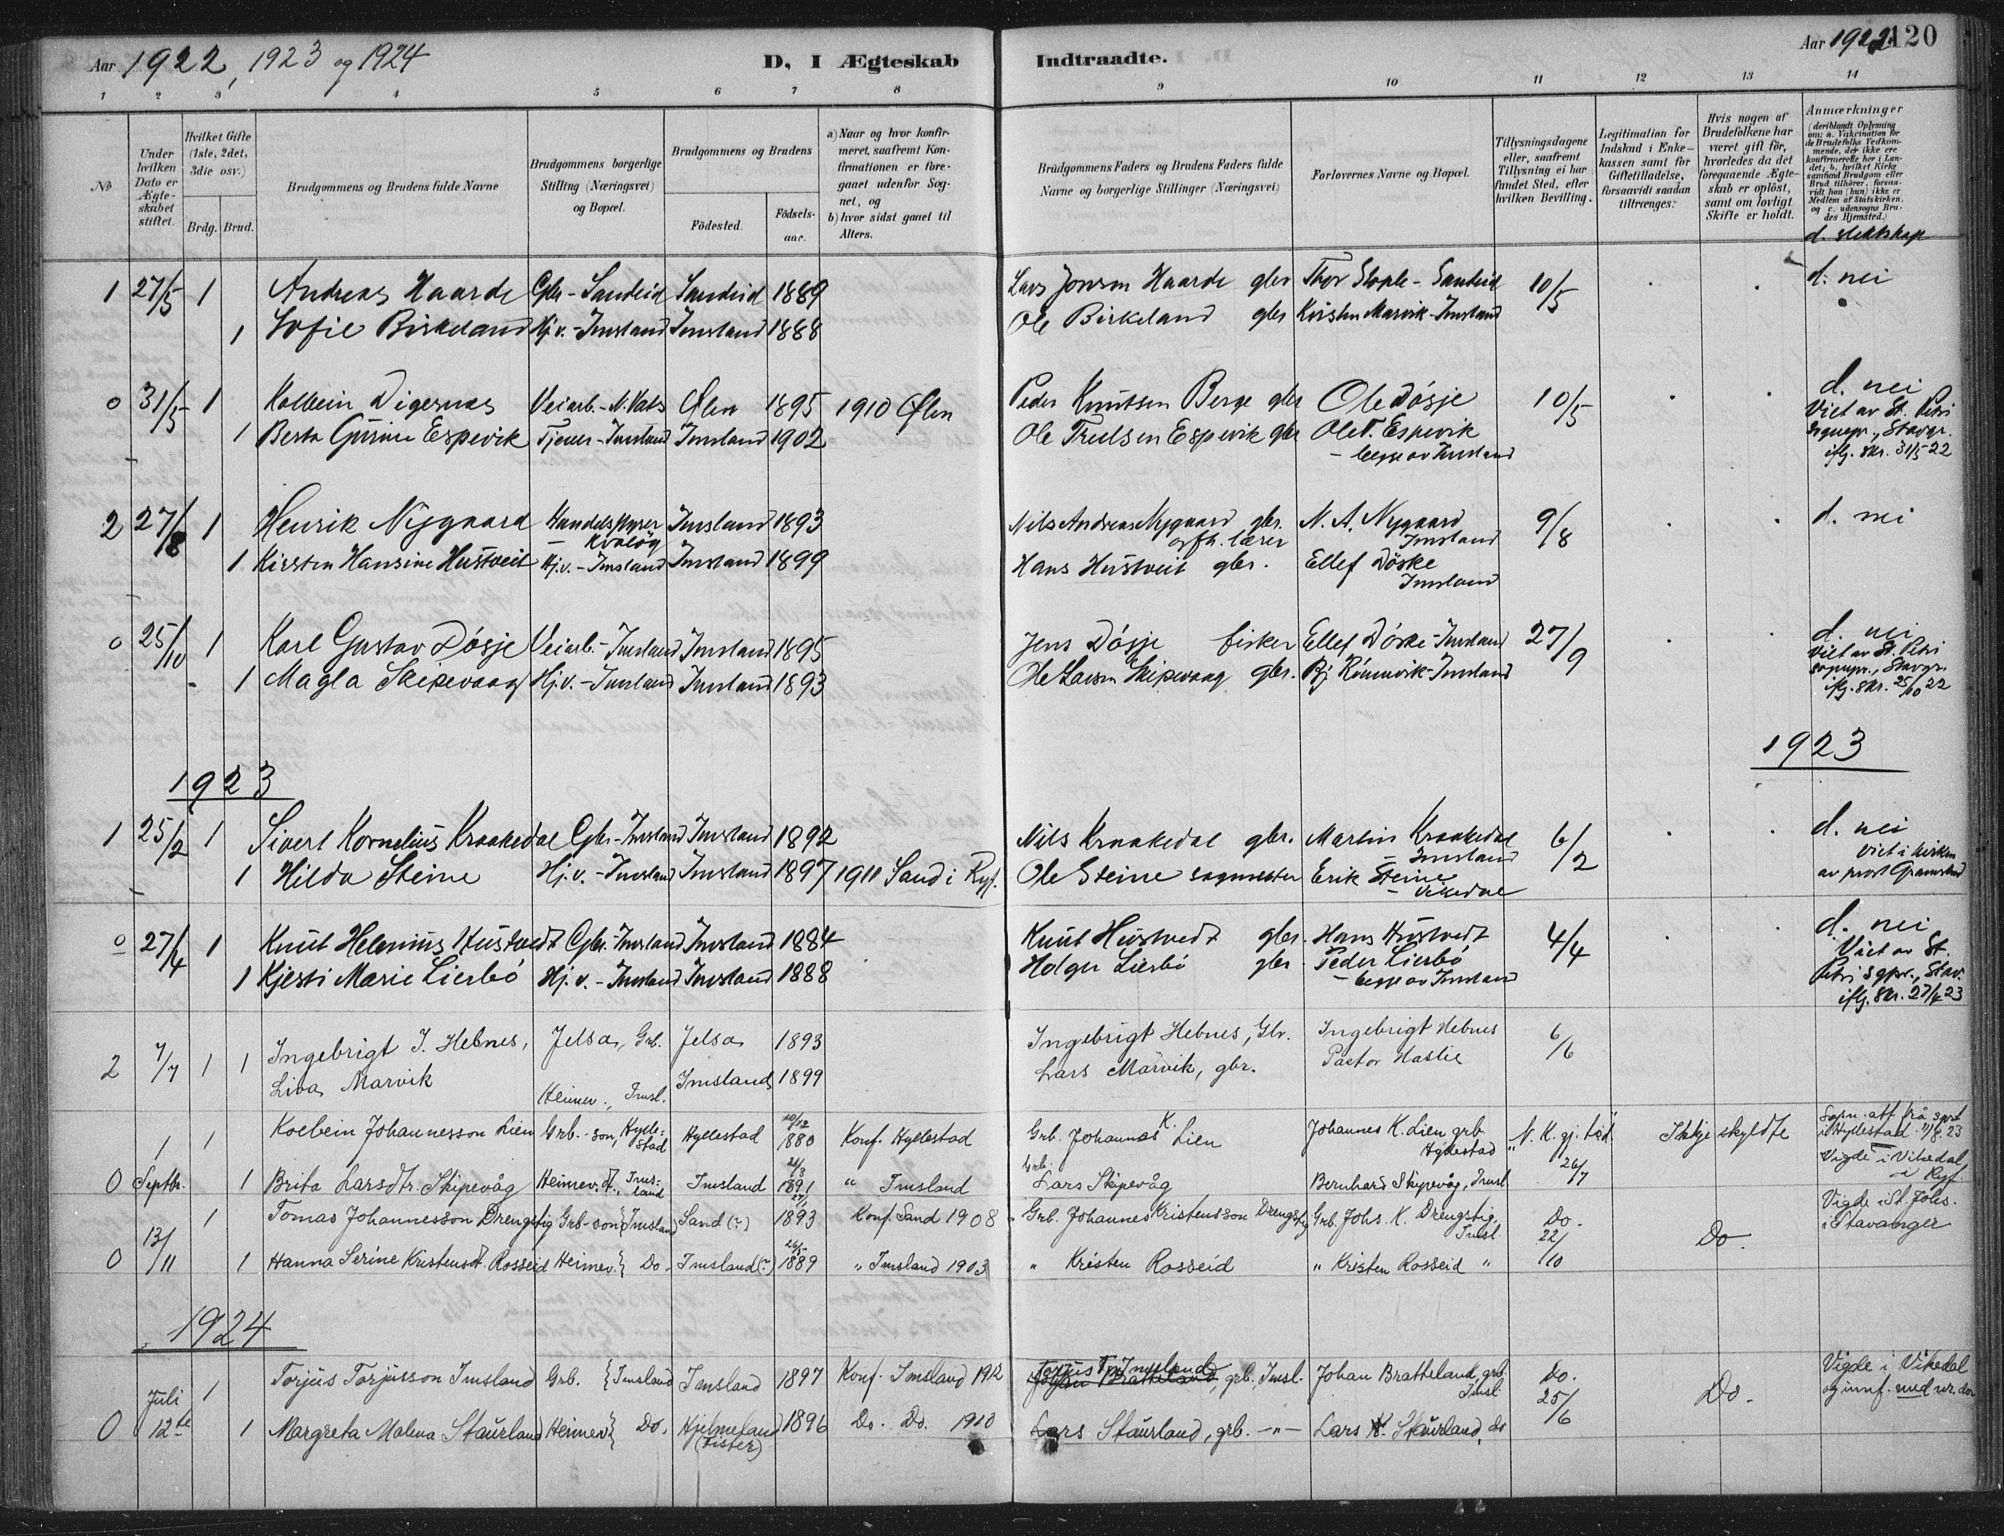 Aar 1922, 1923 og 1924
D, I Ægteskab Indtraadte.
Aar 1922. 120
1 2 3 4 5 6 7 8 9 10 11 12 13 14
No
Under hvilken Dato er Ægteskabet stiftet.
Hvilket Gifte (1ste, 2det, 3die osv.)
Brdg. Brud.
Brudgommens og Brudens fulde Navne
Brudgommens borgerlige Stilling (Næringsvei) og Bopæl.
Brudgommens og Brudens
Fødested. Fødsels-aar.
a) Naar og hvor konfirmeret, saafremt Konfirmationen er foregaaet udenfor Sognet, og
b) hvor sidst gaaet til Alters.
Brudgommens Faders og Brudens Faders fulde Navne og borgerlige Stillinger (Næringsvei)
Forlovernes Navne og Bopæl.
Tillysningsdagene eller, saafremt Tillysning ei har fundet Sted, efter hvilken Bevilling.
Legitimation for Indskud i Enkekassen samt for Giftetilladelse, forsaavidt saadan tiltrænges.
Hvis nogen af Brudefolkene har været gift før, hvorledes da det foregaaende Ægteskab er opløst, samt om lovligt Skifte er holdt.
Anmærkninger (deriblandt Oplysning om: a. Vakcination for de Brudefolks Vedkommende, der ikke ere konfirmerede her i Landet; b. hvilket Kirkesamfund Brudgom eller Brud tilhører, forsaavidt han (hun) ikke er Medlem af Statskirken. og c. udensogns Brudes Hjemsted.)
d. slektskap
1 27/5 1 Andreas Haarde Gbr-Sandeid Sandeid 1889 Lars Jonsen Haarde gbr Thor Stople-Sandeid 10/5 d. nei
1 Sofie Birkeland Hj.v.-Imsland Imsland 1888 Ole Birkeland gbr Kristen Marvik-Imsland
0 31/5 1 Kolbein Digernes Veiarb.-N.Vats Ølen 1895 1910 Ølen Peder Knutsen Berge gbr Ole Døsje 10/5 d. nei
1 Berta Gurine Espevik Tjener-Imsland Imsland 1902 Ole Trulsen Espevik gbr Ole T. Espevik
- begge av Imsland
Viet av St. Petri sognepr., Stavgr. iflg. skr. 31/5 22
2 27/8 1 Henrik Nygaard Handelsstyrer - Kvaløy Imsland 1893 Nils Andreas Nygaard gbr. og fh. lærer N. A. Nygaard Imsland 9/8 d. nei
1 Kirsten Hansine Hustveit Hj.v.-Imsland Imsland 1899 Hans Hustveit gbr. Ellef Døske Imsland
0 25/10 1 Karl Gustav Døsje Veiarb.-Imsland Imsland 1895 Jens Døsje fisker Ellef Døske-Imsland 27/9 d. nei
1 Magla Skipevaag Hj.v.-Imsland Imsland 1893 Ole Larsen Skipevaag gbr. Bj Rønnevik-Imsland
Viet av St. Petri sognepr., Stavgr. iflg. skr. 25/10 22
1923
1923
1 25/2 1 Sivert Kornelius Kraakedal Gbr-Imsland Imsland 1892 Nils Kraakedal gbr. Martin Kraakedal - Imsland 6/2 d. nei
1 Hilda Steine Hj.v.-Imsland Imsland 1897 1911 Sand i Ryf. Ole Steine sagmester Erik Steine - Vikedal
Viet i kirken av prost
0 27/4 1 Knut Helenius Hustvedt Gbr.-Imsland Imsland 1884 Knut Hustvedt gbr. Hans Hustvedt 4/4 d. nei
1 Kjesti Marie Lierbø Hj.v.-Imsland Imsland 1888 Holger Lierbø gbr. Peder Lierbø
- begge av Imsland
Viet av St. Petri sgpr., Stav. iflg. skr. 27/4 23
2 7/7 1 1 Ingebrigt I. Hebnes, Jelsa, Grb. Jelsa 1893 Ingebrigt Hebnes, Gbr. Ingebrigt Hebnes 6/6
Liva Marvik Heimev., Imsl. Imsland 1899 Lars Marvik, gbr. Pastor Haslie
1 1 Kolbein Johannesson Lien Grb.-son, Hyllestad Hyllestad 20/12 1880 Konf. Hyllestad Grb. Johannes K. Lien Johannes K. Lien grb Hyllestad N. K. gj. tid Ikkje skyldte
0 Septbr. 1 Brita Larsdtr. Skipevåg Heimev. dt., Imsland Imsland 1891 " Imsland Grb. Lars Skipevåg Bernhard Skipevåg, Imsl 26/7
Sogn. att. frå i Hyllestad 23
Vigde i Vikedal i Ryf.
1 Tomas Johannesson Drengstig Grb-son Imsland Sand (?) 1893 Konf. Sand 1908 Grb. Johannes Kristensson Drengstig Grb. Johs. K. Drengstig, Imsl. Do. 22/10 Do. Vigde i St. Johs. i Stavanger
0 13/11 1 Hanna Serine Kristensdt. Rosseid Heimev. Do. Imsland (?) 26/5 1889 " Imsland 1903 " Kristen Rosseid " Kristen Rosseid "
1924
1 Torjus Torjusson Imsland Grb. Imsland Imsland 1897 Konf. Imsland 1912 Torjus Imsland, grb., Imsl. Johan Bratteland, grb, Imsl. Do. 25/6 Do. Vigde i Vikedal
0 Juli 12te 1 Margreta Malena Staurland Heimev Do. Hjelmeland (Fister) 1896 Do. Do. 1910 Lars Staurland, grb. -"- Lars K. Staurland, do